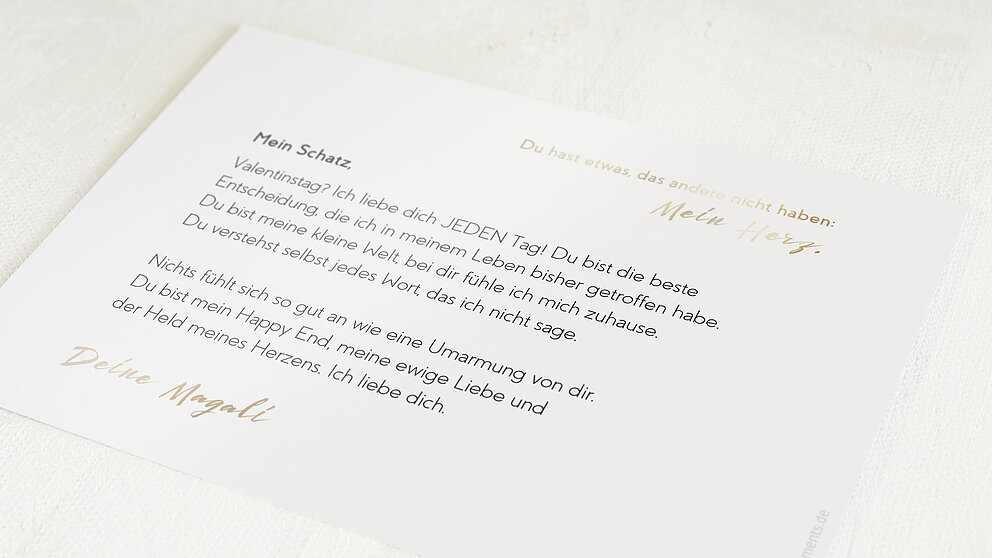 Du hast etwas, das andere nicht haben:
Mein Herz.
Mein Schatz,
Valentinstag? Ich liebe dich JEDEN Tag! Du bist die beste
Entscheidung, die ich in meinem Leben bisher getroffen habe.
Du bist meine kleine Welt, bei dir fühle ich mich zuhause.
Du verstehst selbst jedes Wort, das ich nicht sage.
Nichts fühlt sich so gut an wie eine Umarmung von dir.
Du bist mein Happy End, meine ewige Liebe und
der Held meines Herzens. Ich liebe dich.
Deine Magali